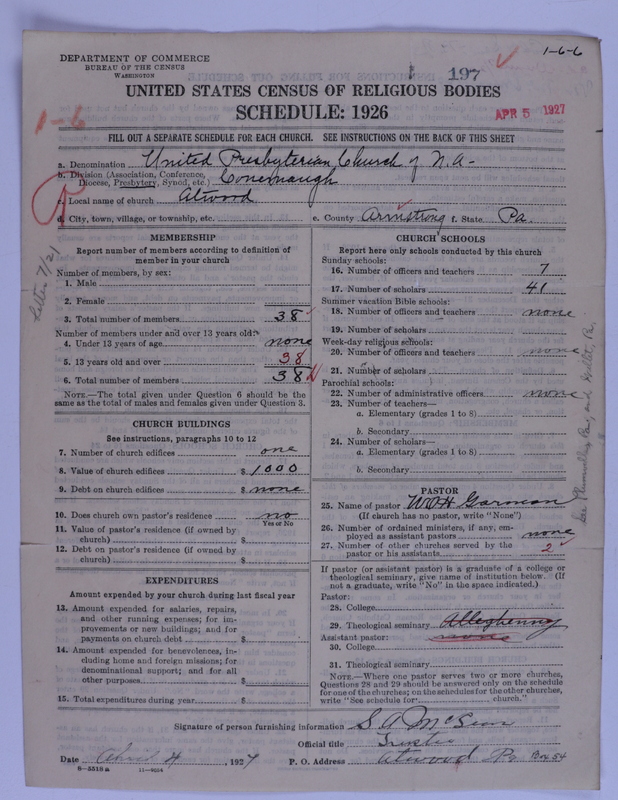 DEPARTMENT OF COMMERCE
BUREAU OF THE CENSUS
WASHINGTON
1-6-6
197
UNITED STATES CENSUS OF RELIGIOUS BODIES
SCHEDULE: 1926
APR 5 1927
1-6
FILL OUT A SEPARATE SCHEDULE FOR EACH CHURCH. SEE INSTRUCTIONS ON THE BACK OF THIS SHEET
a. Denomination United Presbyterian Church of N.A.
b. Division (Association, Conference, Diocese, Presbytery, Synod, etc.) Conemaugh
c. Local name of church Atwood
d. City, town, village, or township, etc. e. County Armstrong f. State Pa.
Letter 7/21
MEMBERSHIP
Report number of members according to definition of
member in your church
Number of members, by sex:
1. Male
2. Female
3. Total number of members 38
Number of members under and over 13 years old:
4. Under 13 years of age none
5. 13 years old and over 38
6. Total number of members 38
NOTE.—The total given under Question 6 should be
same as the total of males and females given under Question 3.
CHURCH BUILDINGS
See instructions, paragraphs 10 to 12
7. Number of church edifices one
8. Value of church edifices $ 1000
9. Debt on church edifices $ none
10. Does church own pastor's residence? no
Yes or No
11. Value of pastor's residence (if owned by
church) $
12. Debt on pastor's residence (if owned by
church) $
EXPENDITURES
Amount expended by your church during last fiscal year
13. Amount expended for salaries, repairs,
and other running expenses; for im-
provements or new buildings; and for
payments on church debt $
14. Amount expended for benevolences, in-
cluding home and foreign missions; for
denominational support; and for all
other purposes $
15. Total expenditures during year $
CHURCH SCHOOLS
Report here only schools conducted by this church
Sunday schools:
16. Number of officers and teachers 7
17. Number of scholars 41
Summer vacation Bible schools:
18. Number of officers and teachers none
19. Number of scholars
Week-day religious schools:
20. Number of officers and teachers none
21. Number of scholars
Parochial schools:
22. Number of administrative officers none
23. Number of teachers—
a. Elementary (grades 1 to 8)
b. Secondary
24. Number of scholars—
a. Elementary (grades 1 to 8)
b. Secondary
PASTOR
25. Name of pastor W. H. Garman
(If church has no pastor, write "None")
26. Number of ordained ministers, if any, em-
ployed as assistant pastors none
27. Number of other churches served by the
pastor or his assistants 2
If pastor (or assistant pastor) is a graduate of a college or
theological seminary, give name of institution below. (If
not a graduate, write "No" in the space indicated.)
Pastor:
28. College
29. Theological seminary Allegheny
Assistant pastor: none
30. College
31. Theological seminary
NOTE.—Where one pastor serves two or more churches,
Questions 28 and 29 should be answered only on the schedule
for one of the churches; on the schedules for the other churches,
write "See schedule for church."
Signature of person furnishing information S A
Official title Trustee
Date April 4, 1927 P. O. Address Atwood Pa Box 54
8-5518a 11-4054